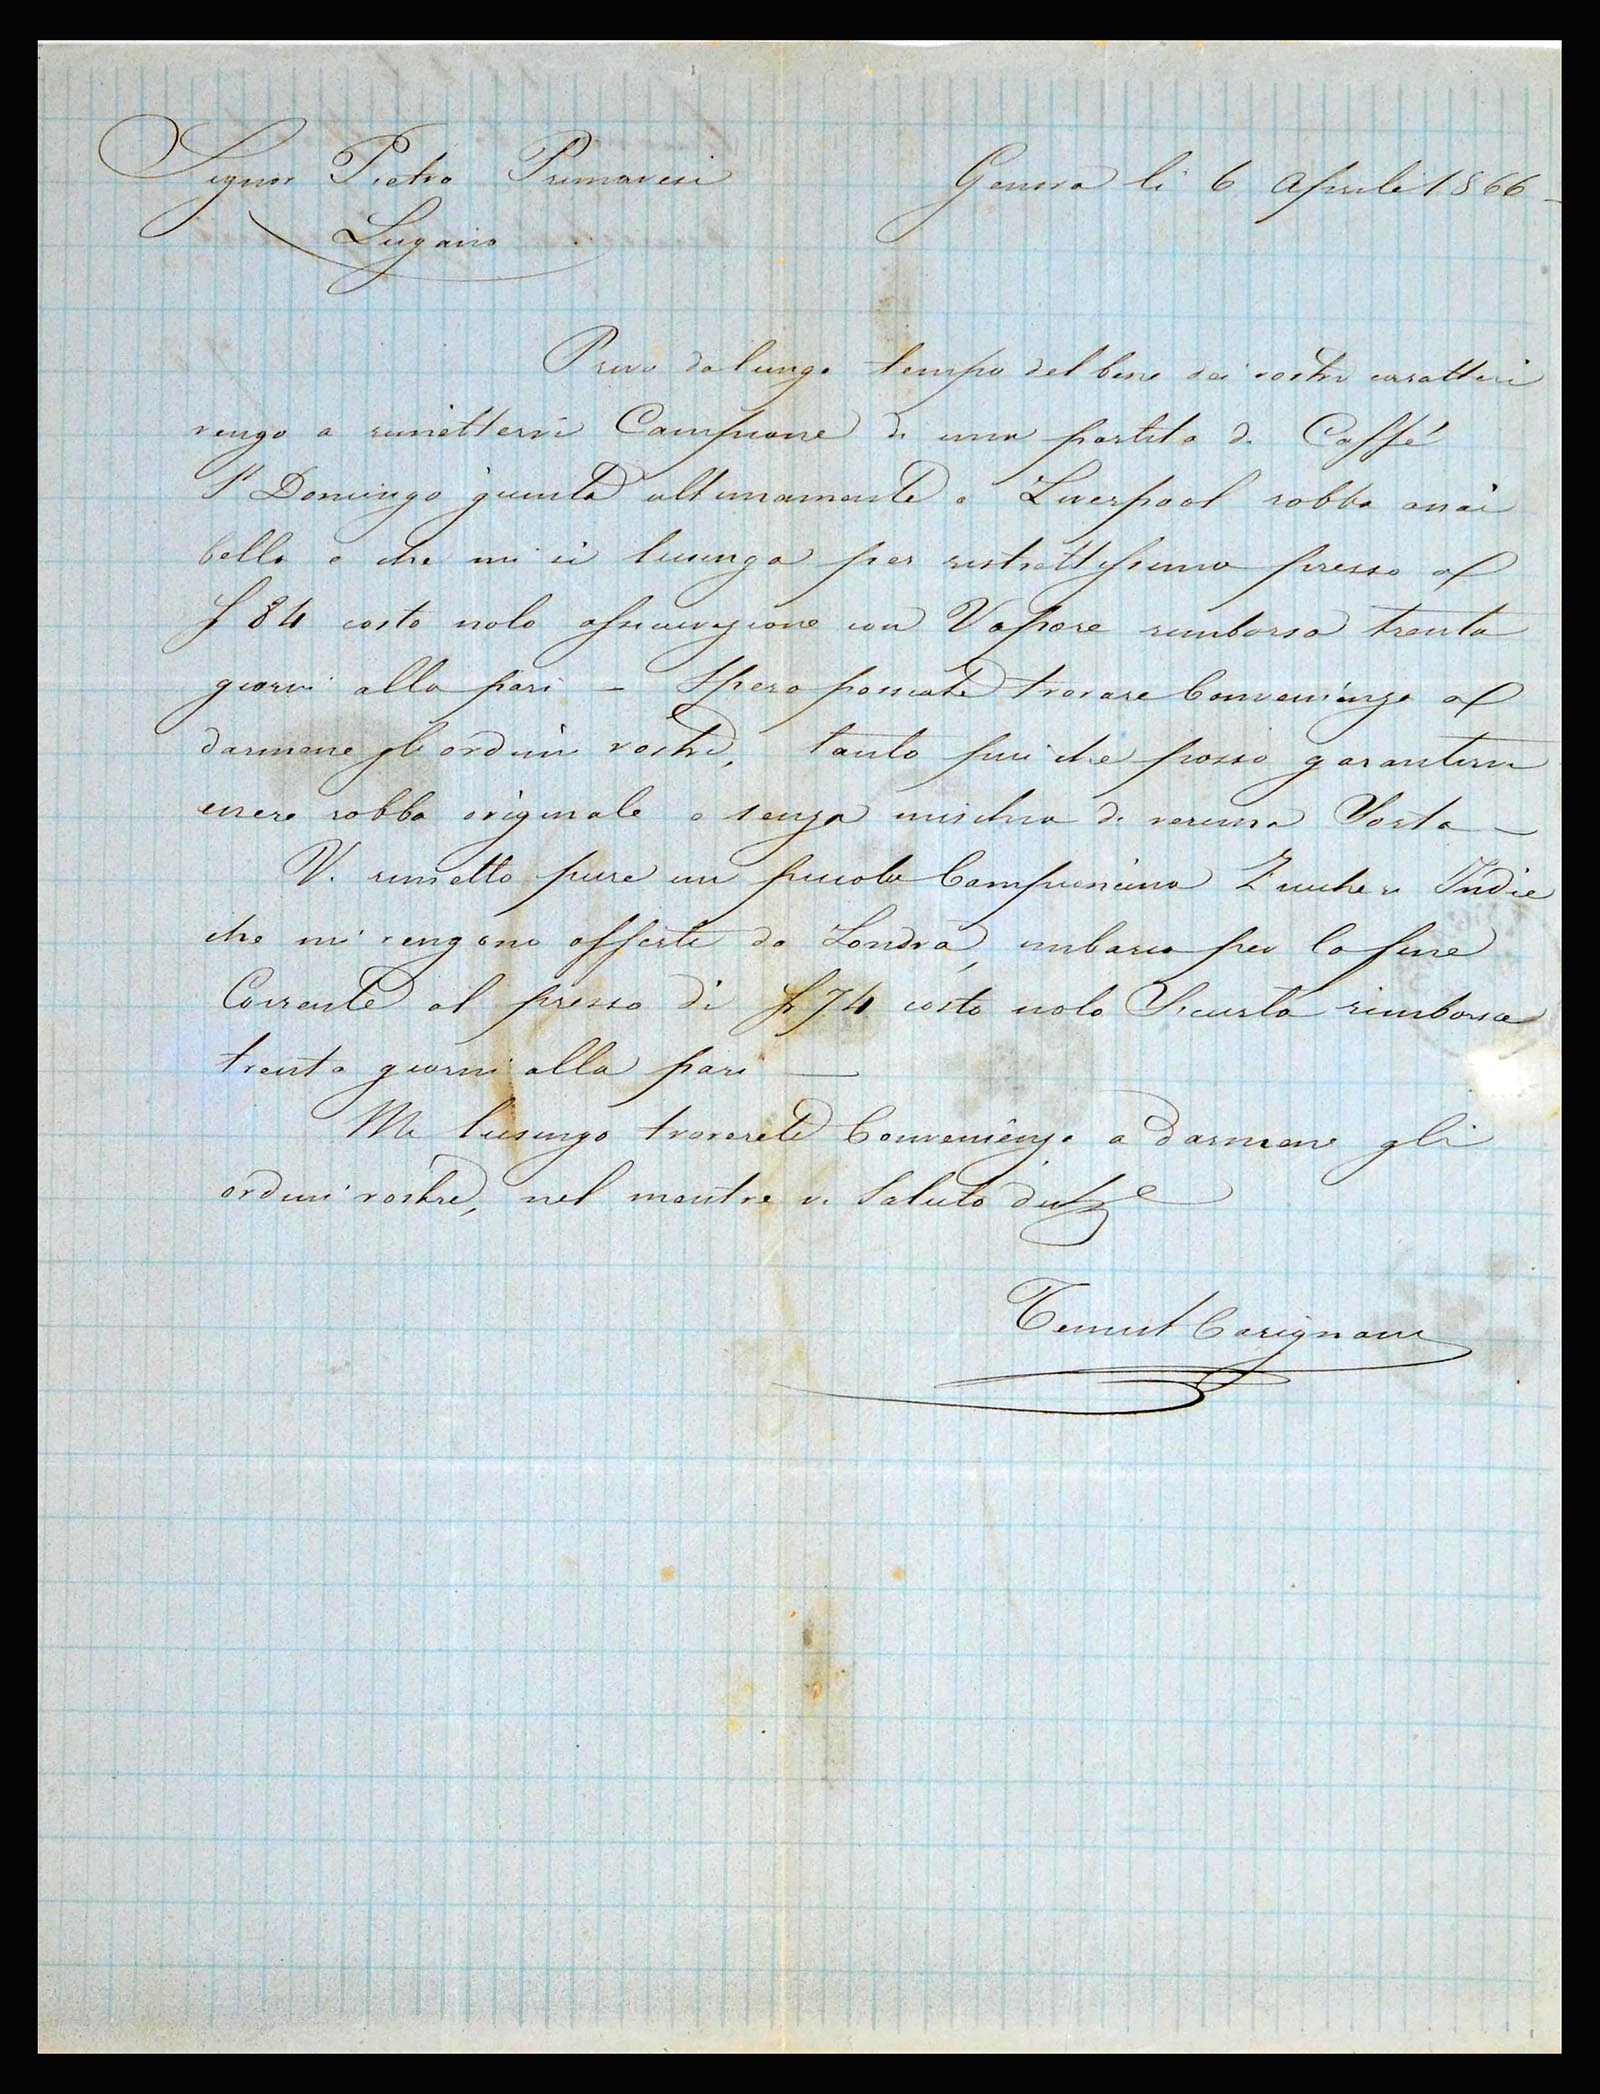 Signor Pietro Primavesi
Lugano
Genova li 6 Aprile 1866
Privo da lungo tempo del bene dei vostri caratteri
vengo a rimettervi Campione di una partita di Caffè
S. Domingo giunta ultimamente a Liverpool robba assai
bella e che mi si lusinga per ristrettissimo presso
84 costo nolo assicurazione con Vapore rimborso trenta
giorni alla pari – Spero possiate trovare Convenienza
darmene gli ordini vostri, tanto più che posso garantirvi
essere robba originale e senza mischia di veruna Sorta –
Vi rimetto pure un piccolo Campioncino Zuccheri Indie
che mi vengono offerti da Londra, imbarco per la fine
Corrente al presso di 74 costo nolo Sicurtà rimborso
trenta giorni alla pari —
Mi lusingo troverete Convenienza a darmene gli
ordini vostri, nel mentre vi Saluto
Carignani